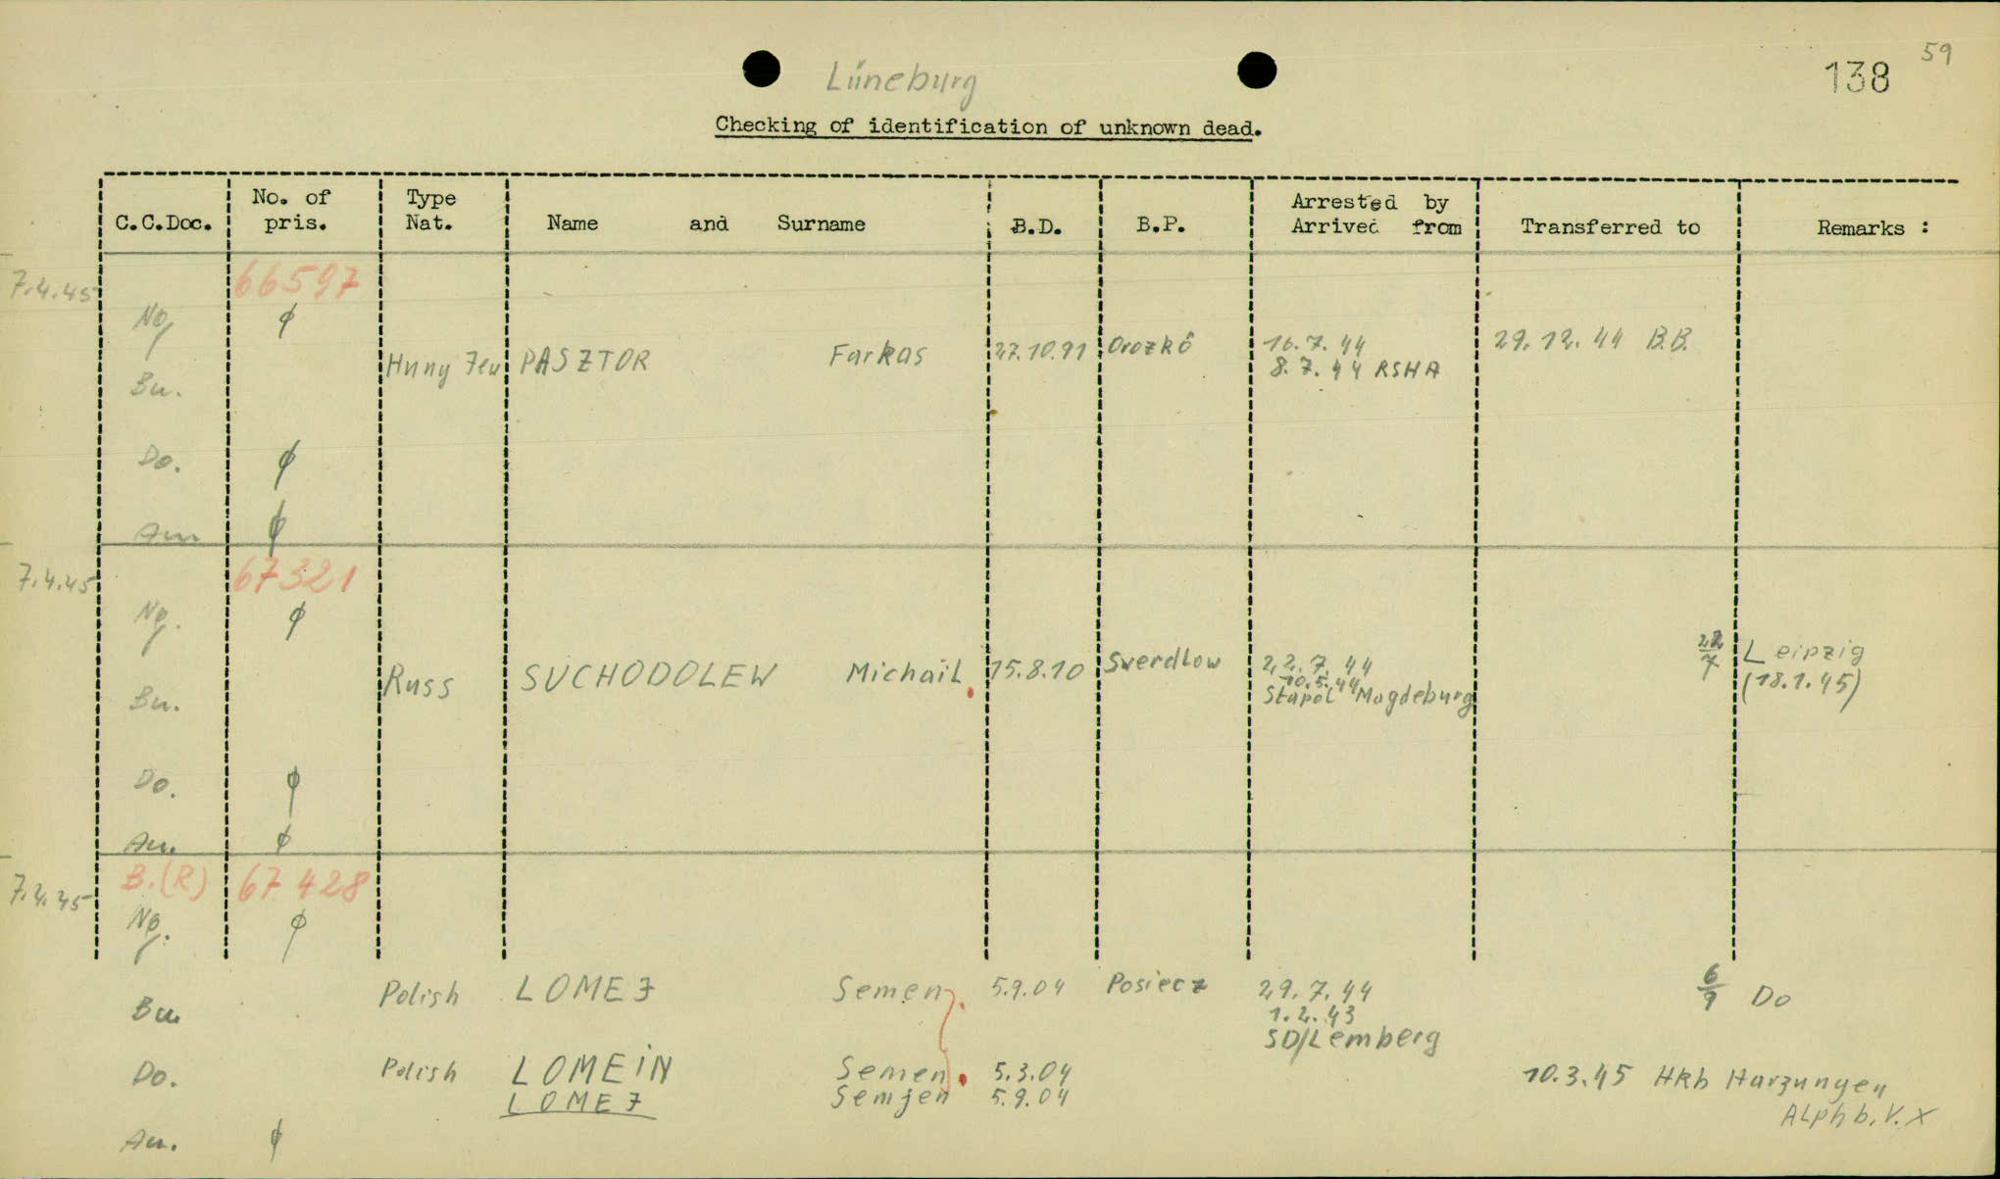 59
138
Lüneburg
Checking of identification of unknown dead.
C.C.Doc. No. of pris. Type Nat. Name and Surname B.D. B.P. Arrested by Arrived from Transferred to Remarks :
7.4.45 66597
Ng ϕ
Hung Jew PASZTOR Farkas 27.10.91 Orozkő 16.7.44 29.12.44 B.B.
8.7.44 RSHA
Bu.
Do. ϕ
Au ϕ
7.4.45 67321
Ng. ϕ
Russ SUCHODOLEW Michail 15.8.10 Sverdlow 22.7.44 22/7 Leipzig
10.5.44 (18.1.45)
Stapol Magdeburg
Bu.
Do. ϕ
Au. ϕ
7.4.45 B.(R) 67428
Ng. ϕ
Bu Polish LOMEJ Semen 5.9.04 Posiecz 29.7.44 6/9 Do
1.2.43
SD/Lemberg
Do. Polish LOMEIN Semen 5.3.04 10.3.45 HKb Harzungen
LOMEJ Semjen 5.9.04 ALphb.V.X
Au. ϕ